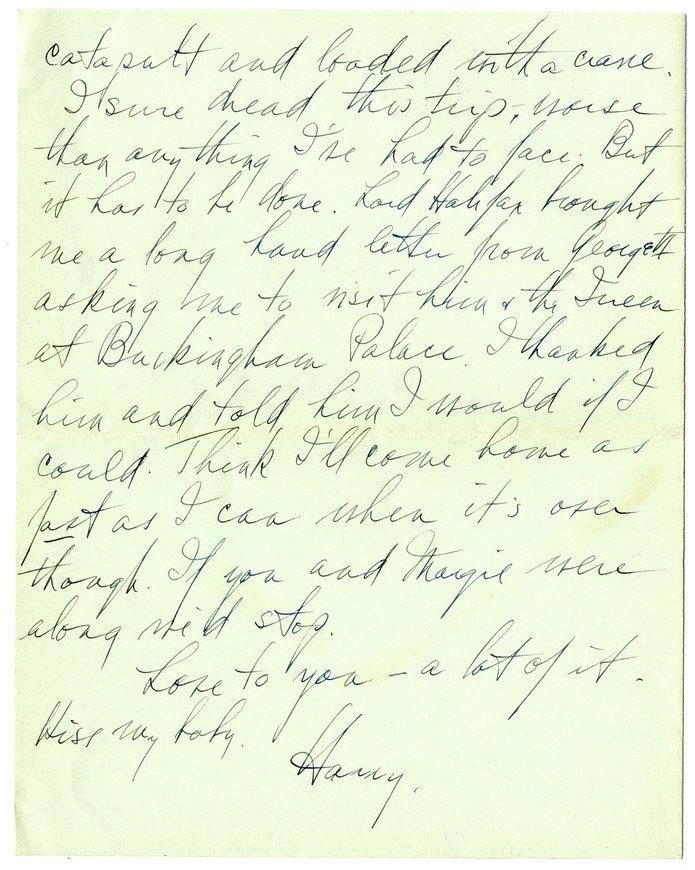 catapult and loaded with a crane.
I sure dread this trip, worse
than anything I've had to face. But
it has to be done. Lord Halifax brought
me a long hand letter from George VI
asking me to visit him & the Queen
at Buckingham Palace. I thanked
him and told him I would if I
could. Think I'll come home as
fast as I can when it's over
though. If you and Margie were
along we'd stop.
Love to you – a lot of it.
Kiss my baby.
Harry.